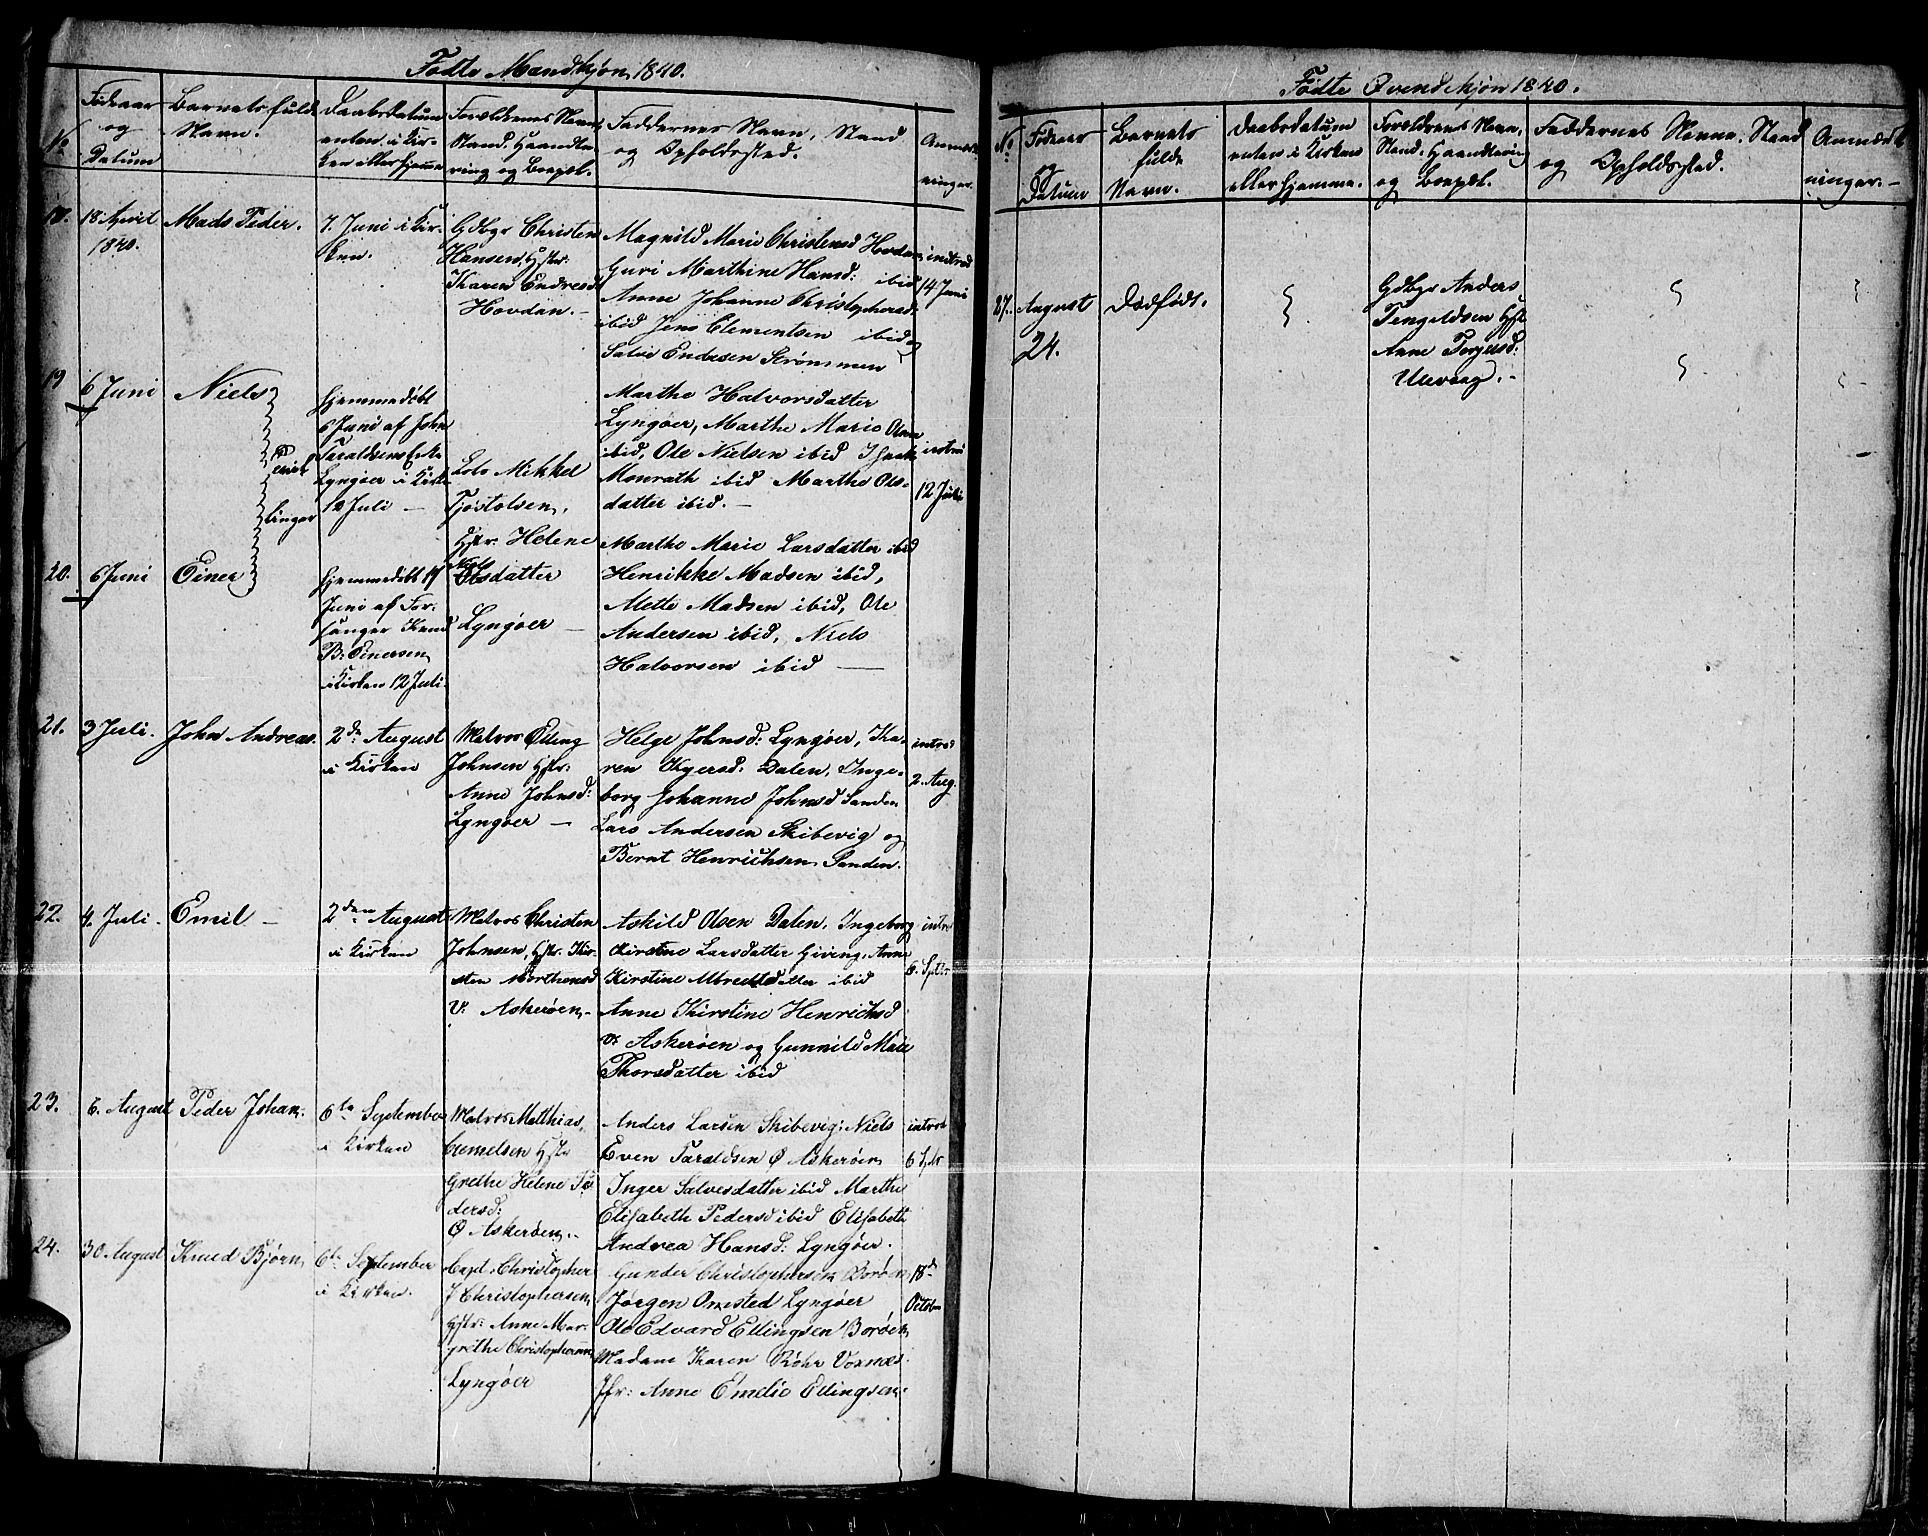 Födte Mandkjøn 1840.
No
Födeaar og Datum
Barnets fulde Navn.
Daabsdatum enten i Kirken eller hjemme
Forældrenes Navn, Stand, Haandtering og Boepæl.
Faddernes Navn, Stand og Opholdssted.
Anmærkninger.
18. 18 April 1840.
Mads Peder.
7. Juni i Kirken.
Gdbgr Christen
Hansen, Hstr:
Karen Endresd
Hovdan. –
Magnild Marie Christensd Hovdan,
Guri Marthine Hansd: ibid
Anne Johanne Christophersd:
ibid Jens Clementsen ibid og
Salve Endresen Strømmen
introd
14 Juni
19
6 Juni
Niels
Tvillinger
hjemmedøbt
6 Juni af John
Taraldsen
Lyngøer i Kirken
12 Juli –
Lods Mikkel
Tjøstolsen,
Hstr: Helene
Niels
Olsdatter
Lyngøer –
Marthe Halvorsdatter
Lyngøer, Marthe Marie Olsen
ibid, Ole Nielsen ibid Isaak
Monrath ibid Marthe Ols-
datter ibid. –
introd
12 Juli
20.
6 Juni
Einer
hjemmedöbt 17
Juni af For-
sanger Knud
B. Einersen
i Kirken 12 Juli.
Marthe Marie Larsdatter ibid
Henrikke Madsen ibid,
Mette Madsen ibid, Ole
Andersen ibid, Niels
Halvorsen ibid —
21.
3 Juli.
John Andreas.
2den August
i Kirken
Matros Elling
Johnsen Hstr:
Anne Johnsd:
Lyngøer –
Helge Johnsd: Lyngøer, Ka-
ren Kgersd: Dalen, Inge-
borg Johanne Johnsd Sanden
Lars Andersen Skibevig og
Bernt Henrichsen Sanden.
introd
2. Aug.
22.
4. Juli.
Emil –
2den August
i Kirken
Matros Christen
Johnsen, Hstr. Kir-
sten Morthensd
V: Askerøen, –
Askild Olsen Dalen, Ingeborg
Kirstine Larsdatter Giving, Anne
Kirstine Albretsdatter ibid
Anne Kirstine Henrichsd
V: Askerøen og Gunnild Marie
Thorsdatter ibid
introd
6. Sptbr
23.
6. August
Peder Johan.
6te September
i Kirken
Matros Matthias
Clemetsen Hstr
Grethe Helene Pe-
dersd:
Ø Askerøen. –
Anders Larsen Skibevig, Niels
Even Taraldsen Ø Askerøen
Inger Salvesdatter ibid Marthe
Elisabeth Pedersd ibid Elisabeth
Andrea Hansd: Lyngøer.
introd
6 Sptbr
24.
30 August
Knud Bjørn
6te September
i Kirken.
Capt: Christopher
J Christophersen
Hstr: Anne Mar-
grethe Christophersen
Lyngøer
Gunder Christophersen Borøen,
Jørgen Omsted Lyngøer
Ole Edvard Ellingsen Borøen,
Madame Karen Røhr Voxnæs.
Jfr: Anne Emelie Ellingsen.
18de
October
Födte Qvindekjön 1840.
No
Födeaar og Datum
Barnets fulde Navn.
Daabsdatum enten i Kirken eller hjemme.
Forældrenes Navn, Stand, Haandtering og Boepæl.
Faddernes Navne, Stand og Opholdssted.
Anmærkninger. –
27.
August
24.
Dødfødt.
Gdbgr Anders
Tengeldsen Hstr
Anne Torjusd:
Ulevaag. –